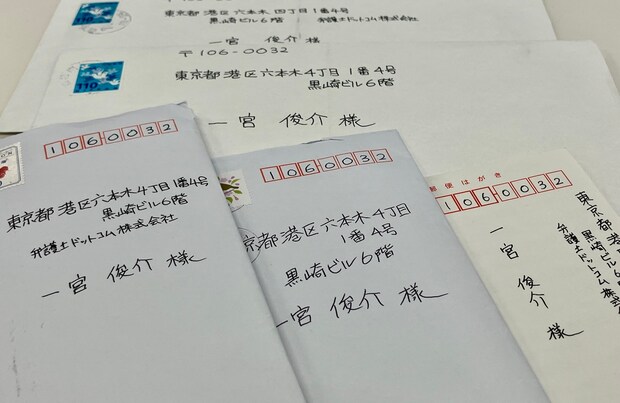 110
東京都港区六本木四丁目1番4号
黒崎ビル6階 弁護士ドットコム株式会社
一宮 俊介 様
〒106-0032
110
東京都港区六本木4丁目1番4号
黒崎ビル6階
一宮 俊介 様
1060032
東京都港区六本木4丁目1番4号
黒崎ビル6階
弁護士ドットコム株式会社
一宮 俊介 様
1060032
京都港区六本木4丁目
1番4号
黒崎ビル6階
一宮 俊介 様
郵便はがき
1060032
東京都港区六本
黒崎ビル6階
弁護士ドットコム株式会
一宮 俊介 様